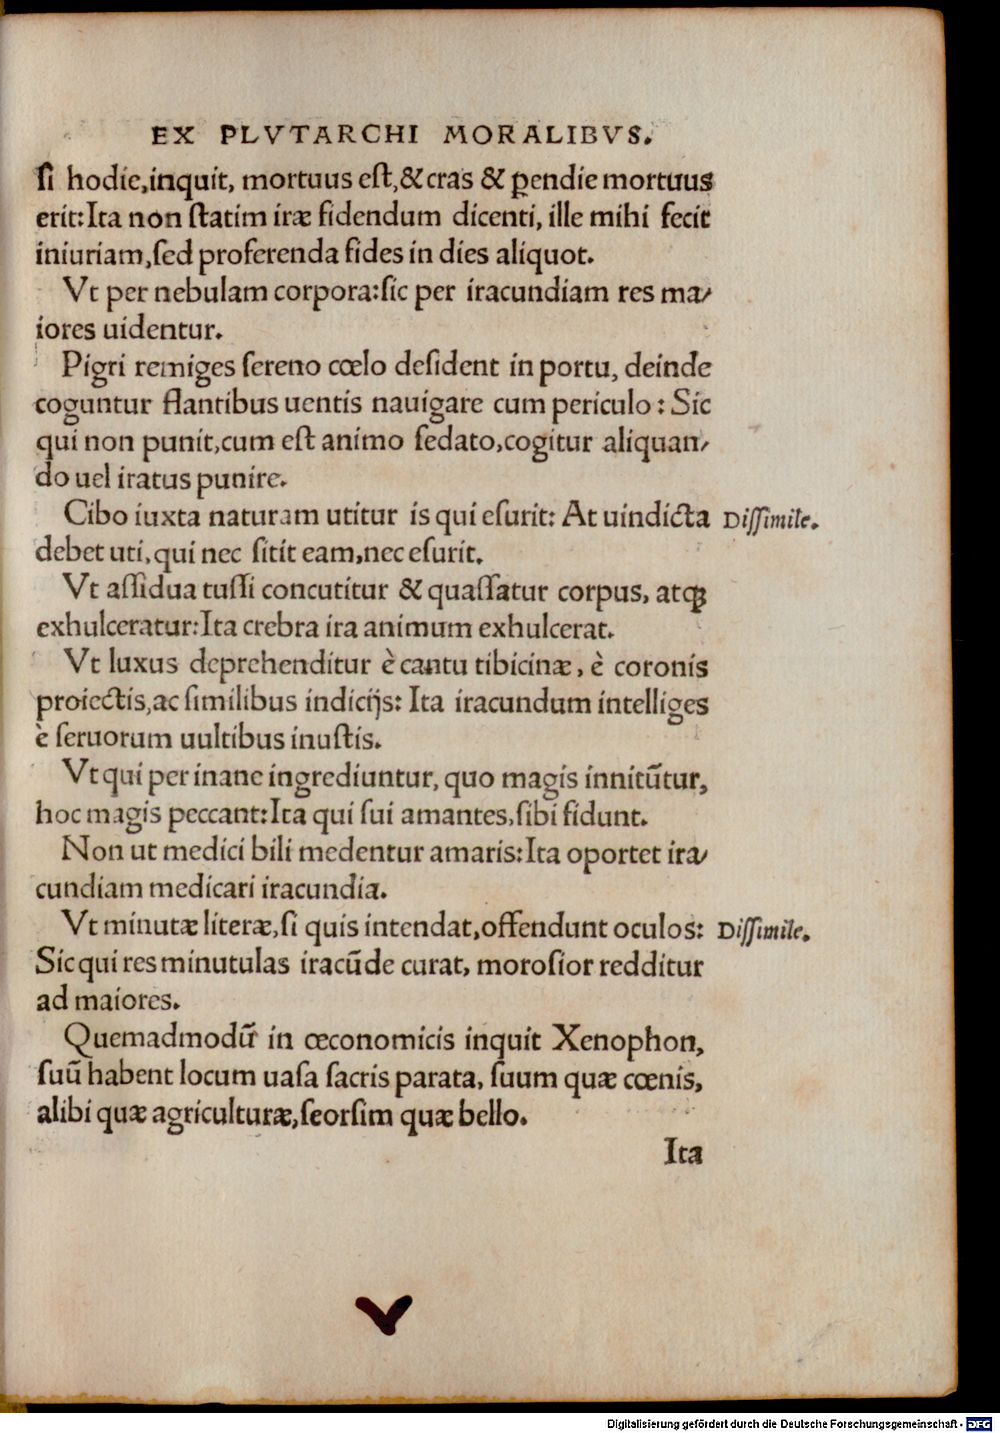 EX PLVTARCHI MORALIBVS.
ſi hodie,inquit, mortuus eſt,& cras & ꝑendie mortuus
erit:Ita non ſtatim iræ fidendum dicenti, ille mihi fecit
iniuriam,ſed proferenda fides in dies aliquot.
Vt per nebulam corpora:ſic per iracundiam res ma/
iores uidentur.
Pigri remiges ſereno cœlo deſident in portu, deinde
coguntur flantibus uentis nauigare cum periculo: Sic
qui non punit,cum eſt animo ſedato,cogitur aliquan/
do uel iratus punire.
Cibo iuxta naturam utitur is qui eſurit: At uindicta Diſſimile.
debet uti,qui nec ſitit eam,nec eſurit.
Vt aſſidua tuſſi concutitur & quaſſatur corpus, atqꝫ
exhulceratur:Ita crebra ira animum exhulcerat.
Vt luxus deprehenditur è cantu tibicinæ, è coronis
proiectis,ac ſimilibus indicijs: Ita iracundum intelliges
è ſeruorum uultibus inuſtis.
Vt qui per inane ingrediuntur, quo magis innitūtur,
hoc magis peccant:Ita qui ſui amantes,ſibi fidunt.
Non ut medici bili medentur amaris:Ita oportet ira/
cundiam medicari iracundia.
Vt minutæ literæ,ſi quis intendat,offendunt oculos: Diſſimile.
Sic qui res minutulas iracūde curat, moroſior redditur
ad maiores.
Quemadmodū in œconomicis inquit Xenophon,
ſuū habent locum uaſa ſacris parata, ſuum quæ cœnis,
alibi quæ agriculturæ,ſeorſim quæ bello.
Ita
Digitalisierung gefördert durch die Deutsche Forschungsgemeinschaft - DFG